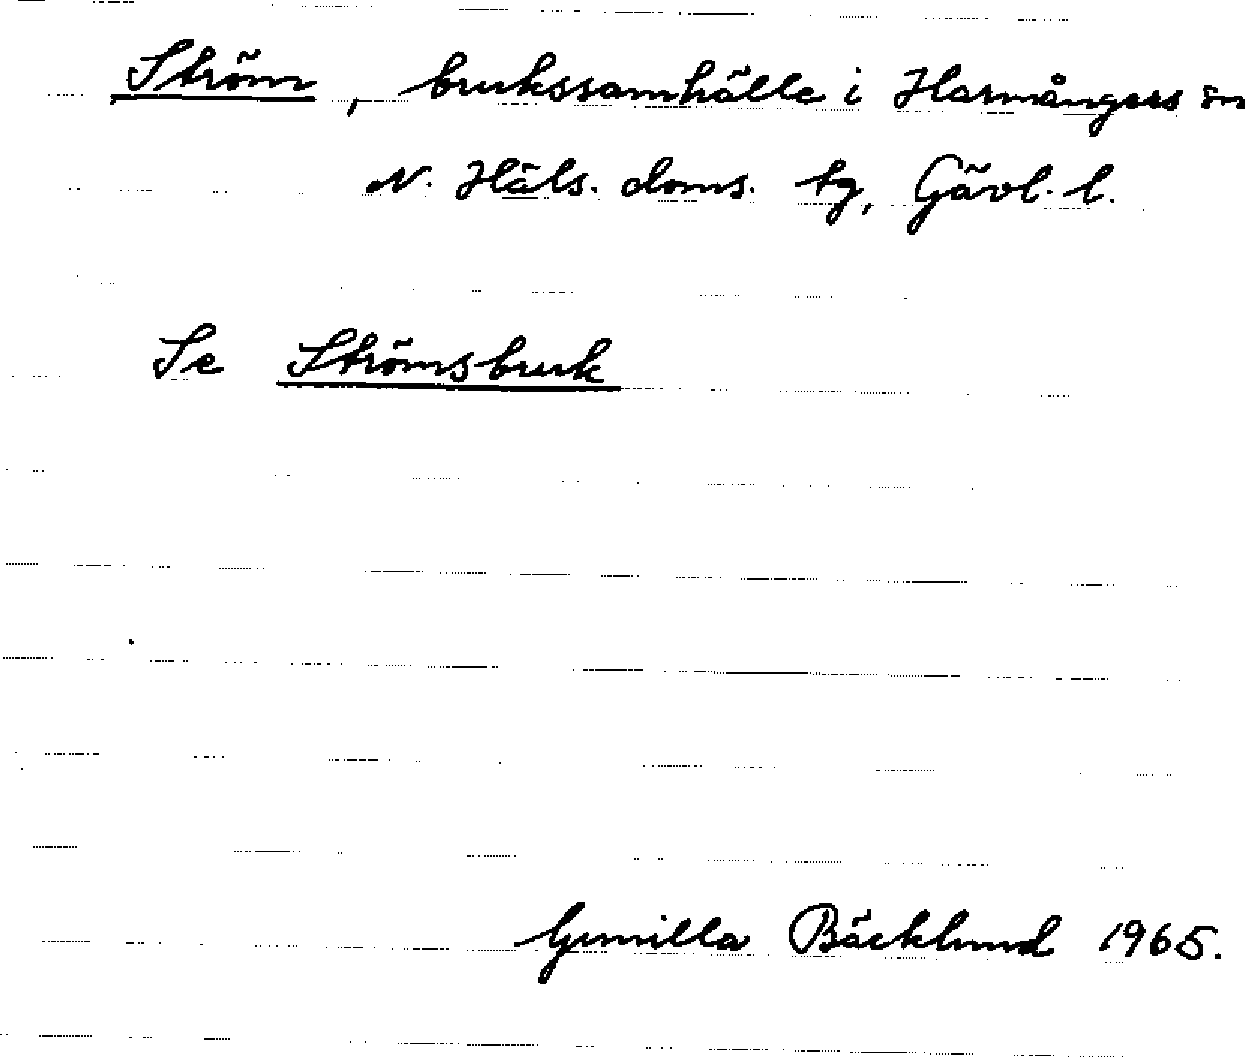 Ström, brukssamhälle i Harmångers sn
N. Häls. doms. tg, Gävl. l.
Se Strömsbruk
Gunilla Bäcklund 1965.